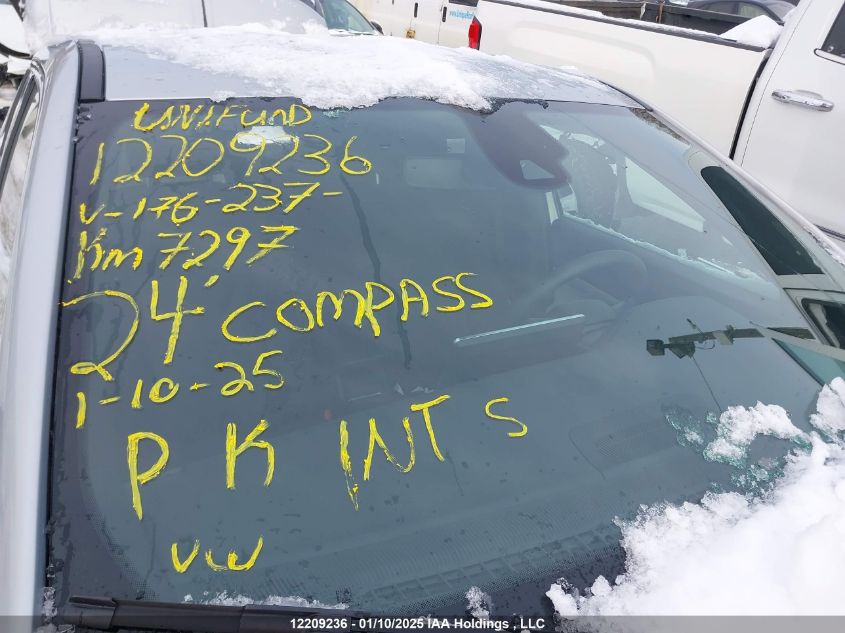 UNIFUND
12209236
V-176-237-
Km 7297
24' COMPASS
1-10-25
P K INT S
VW
12209236 - 01/10/2025 IAA Holdings, LLC